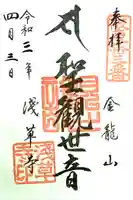 奉拝
金龍山
聖観世音
令和三年
四月三日
浅草寺